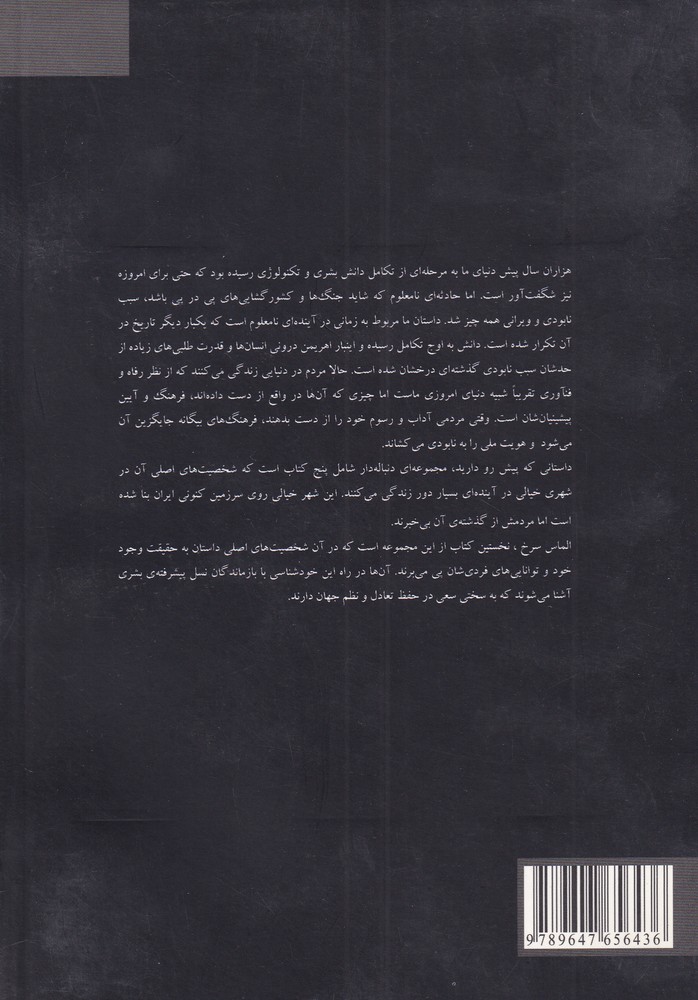 هزاران سال پیش دنیای ما به مرحله‌ای از تکامل دانش بشری و تکنولوژی رسیده بود که حتی برای امروزه
نیز شگفت‌آور است. اما حادثه‌ای نامعلوم که شاید جنگ‌ها و کشورگشایی‌های پی در پی باشد، سبب
نابودی و ویرانی همه چیز شد. داستان ما مربوط به زمانی در آینده‌ای نامعلوم است که یکبار دیگر تاریخ در
آن تکرار شده است. دانش به اوج تکامل رسیده و اینبار اهریمن درونی انسان‌ها و قدرت طلبی‌های زیاده از
حدشان سبب نابودی گذشته‌ای درخشان شده است. حالا مردم در دنیایی زندگی می‌کنند که از نظر رفاه و
فنآوری تقریباً شبیه دنیای امروزی ماست اما چیزی که آن‌ها در واقع از دست داده‌اند، فرهنگ و آیین
پیشینیان‌شان است. وقتی مردمی آداب و رسوم خود را از دست بدهند، فرهنگ‌های بیگانه جایگزین آن
می‌شود و هویت ملی را به نابودی می‌کشاند.
داستانی که پیش رو دارید، مجموعه‌ای دنباله‌دار شامل پنج کتاب است که شخصیت‌های اصلی آن در
شهری خیالی در آینده‌ای بسیار دور زندگی می‌کنند. این شهر خیالی روی سرزمین کنونی ایران بنا شده
است اما مردمش از گذشته‌ی آن بی‌خبرند.
الماس سرخ ، نخستین کتاب از این مجموعه است که در آن شخصیت‌های اصلی داستان به حقیقت وجود
خود و توانایی‌های فردی‌شان پی می‌برند. آن‌ها در راه این خودشناسی با بازماندگان نسل پیشرفته‌ی بشری
آشنا می‌شوند که به سختی سعی در حفظ تعادل و نظم جهان دارند.
9 789647 656436